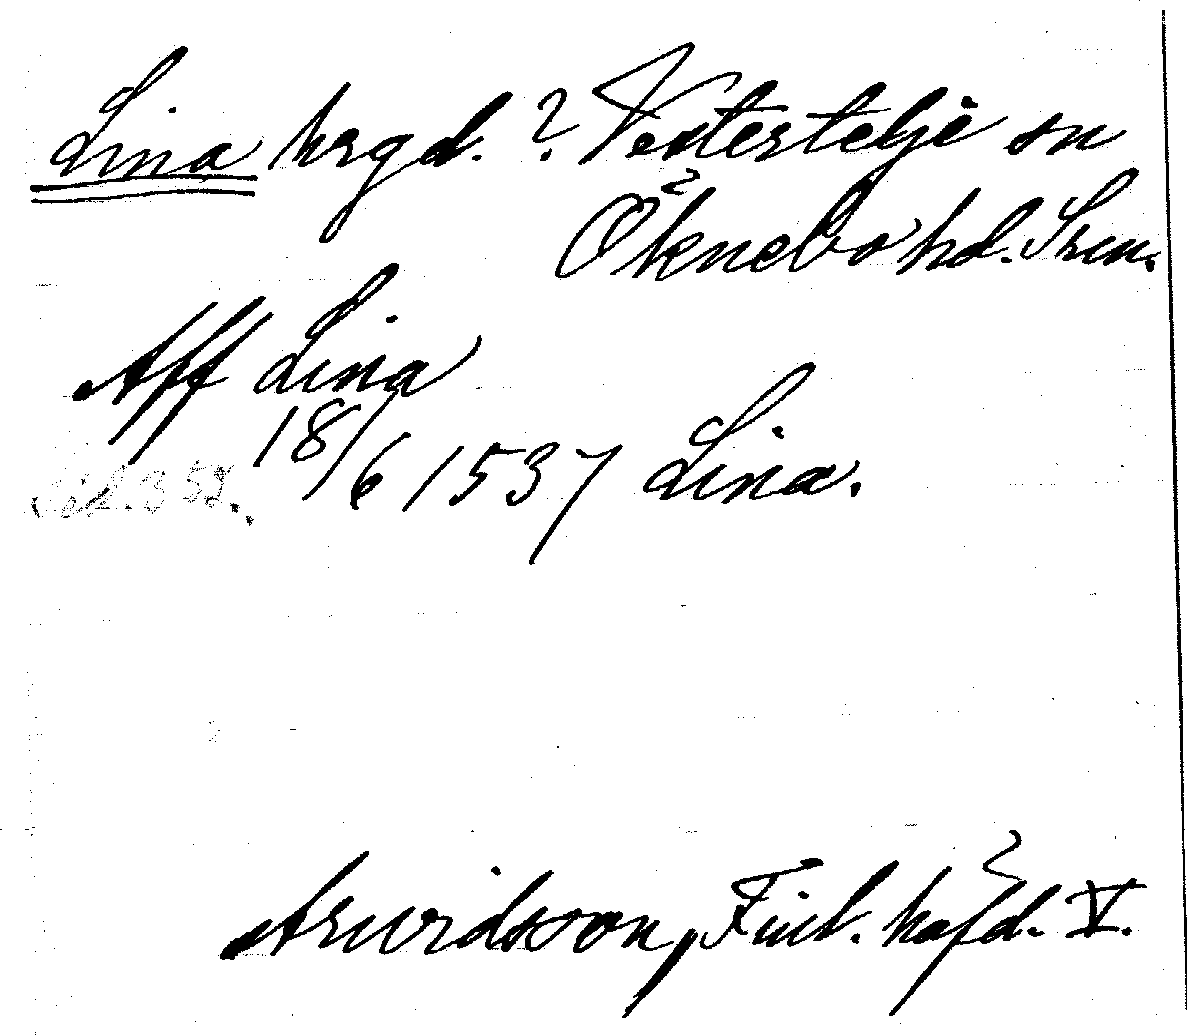 Lina hrgd. ? Vestertelje sn
Öknebo hd. Srm.
Aff Lina
18/6 1537 Lina.
sid. 357.
Arwidsson, Finl. häfd. V.